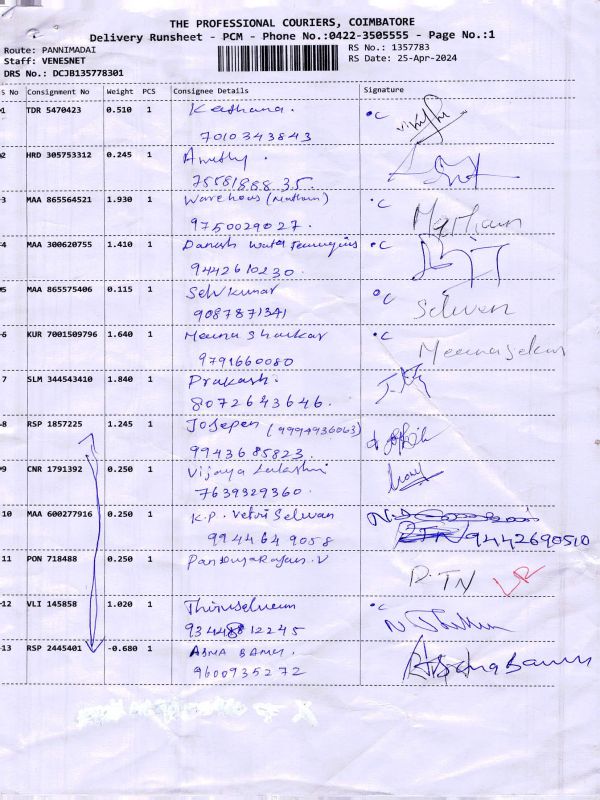 THE PROFESSIONAL COURIERS, COIMBATORE
Delivery Runsheet - PCM - Phone No.:0422-3505555 - Page No.:1
Route: PANNIMADAI RS No.: 1357783
Staff: VENESNET RS Date: 25-Apr-2024
DRS No.: DCJB135778301
S No Consignment No Weight PCS Consignee Details Signature
1 TDR 5470423 0.510 1 Keathana. °C
7010343843
2 HRD 305753312 0.245 1
75581888 35.
3 MAA 865564521 1.930 1 Warehous (Matham) °C
9750029027.
4 MAA 300620755 1.410 1 Danush Wata °C
9442610230.
5 MAA 865575406 0.115 1 Selvkumar °C
9087871341 Selven
6 KUR 7001509796 1.640 1 Meena Shankar °C
9791660080 Meenasekar
7 SLM 344543410 1.840 1 Prakash.
8072643646.
8 RSP 1857225 1.245 1 Josepen (9994936063)
9943685823.
9 CNR 1791392 0.250 1 Vijaya
7639329360.
10 MAA 600277916 0.250 1 K.P. Vetri Selvan
994464 9058 9442690510
11 PON 718488 0.250 1 Pandiyarajan. V
P. TN
12 VLI 145858 1.020 1 Thiruselvam °C
9344812245
13 RSP 2445401 -0.680 1 ASMA BANU.
9600935272